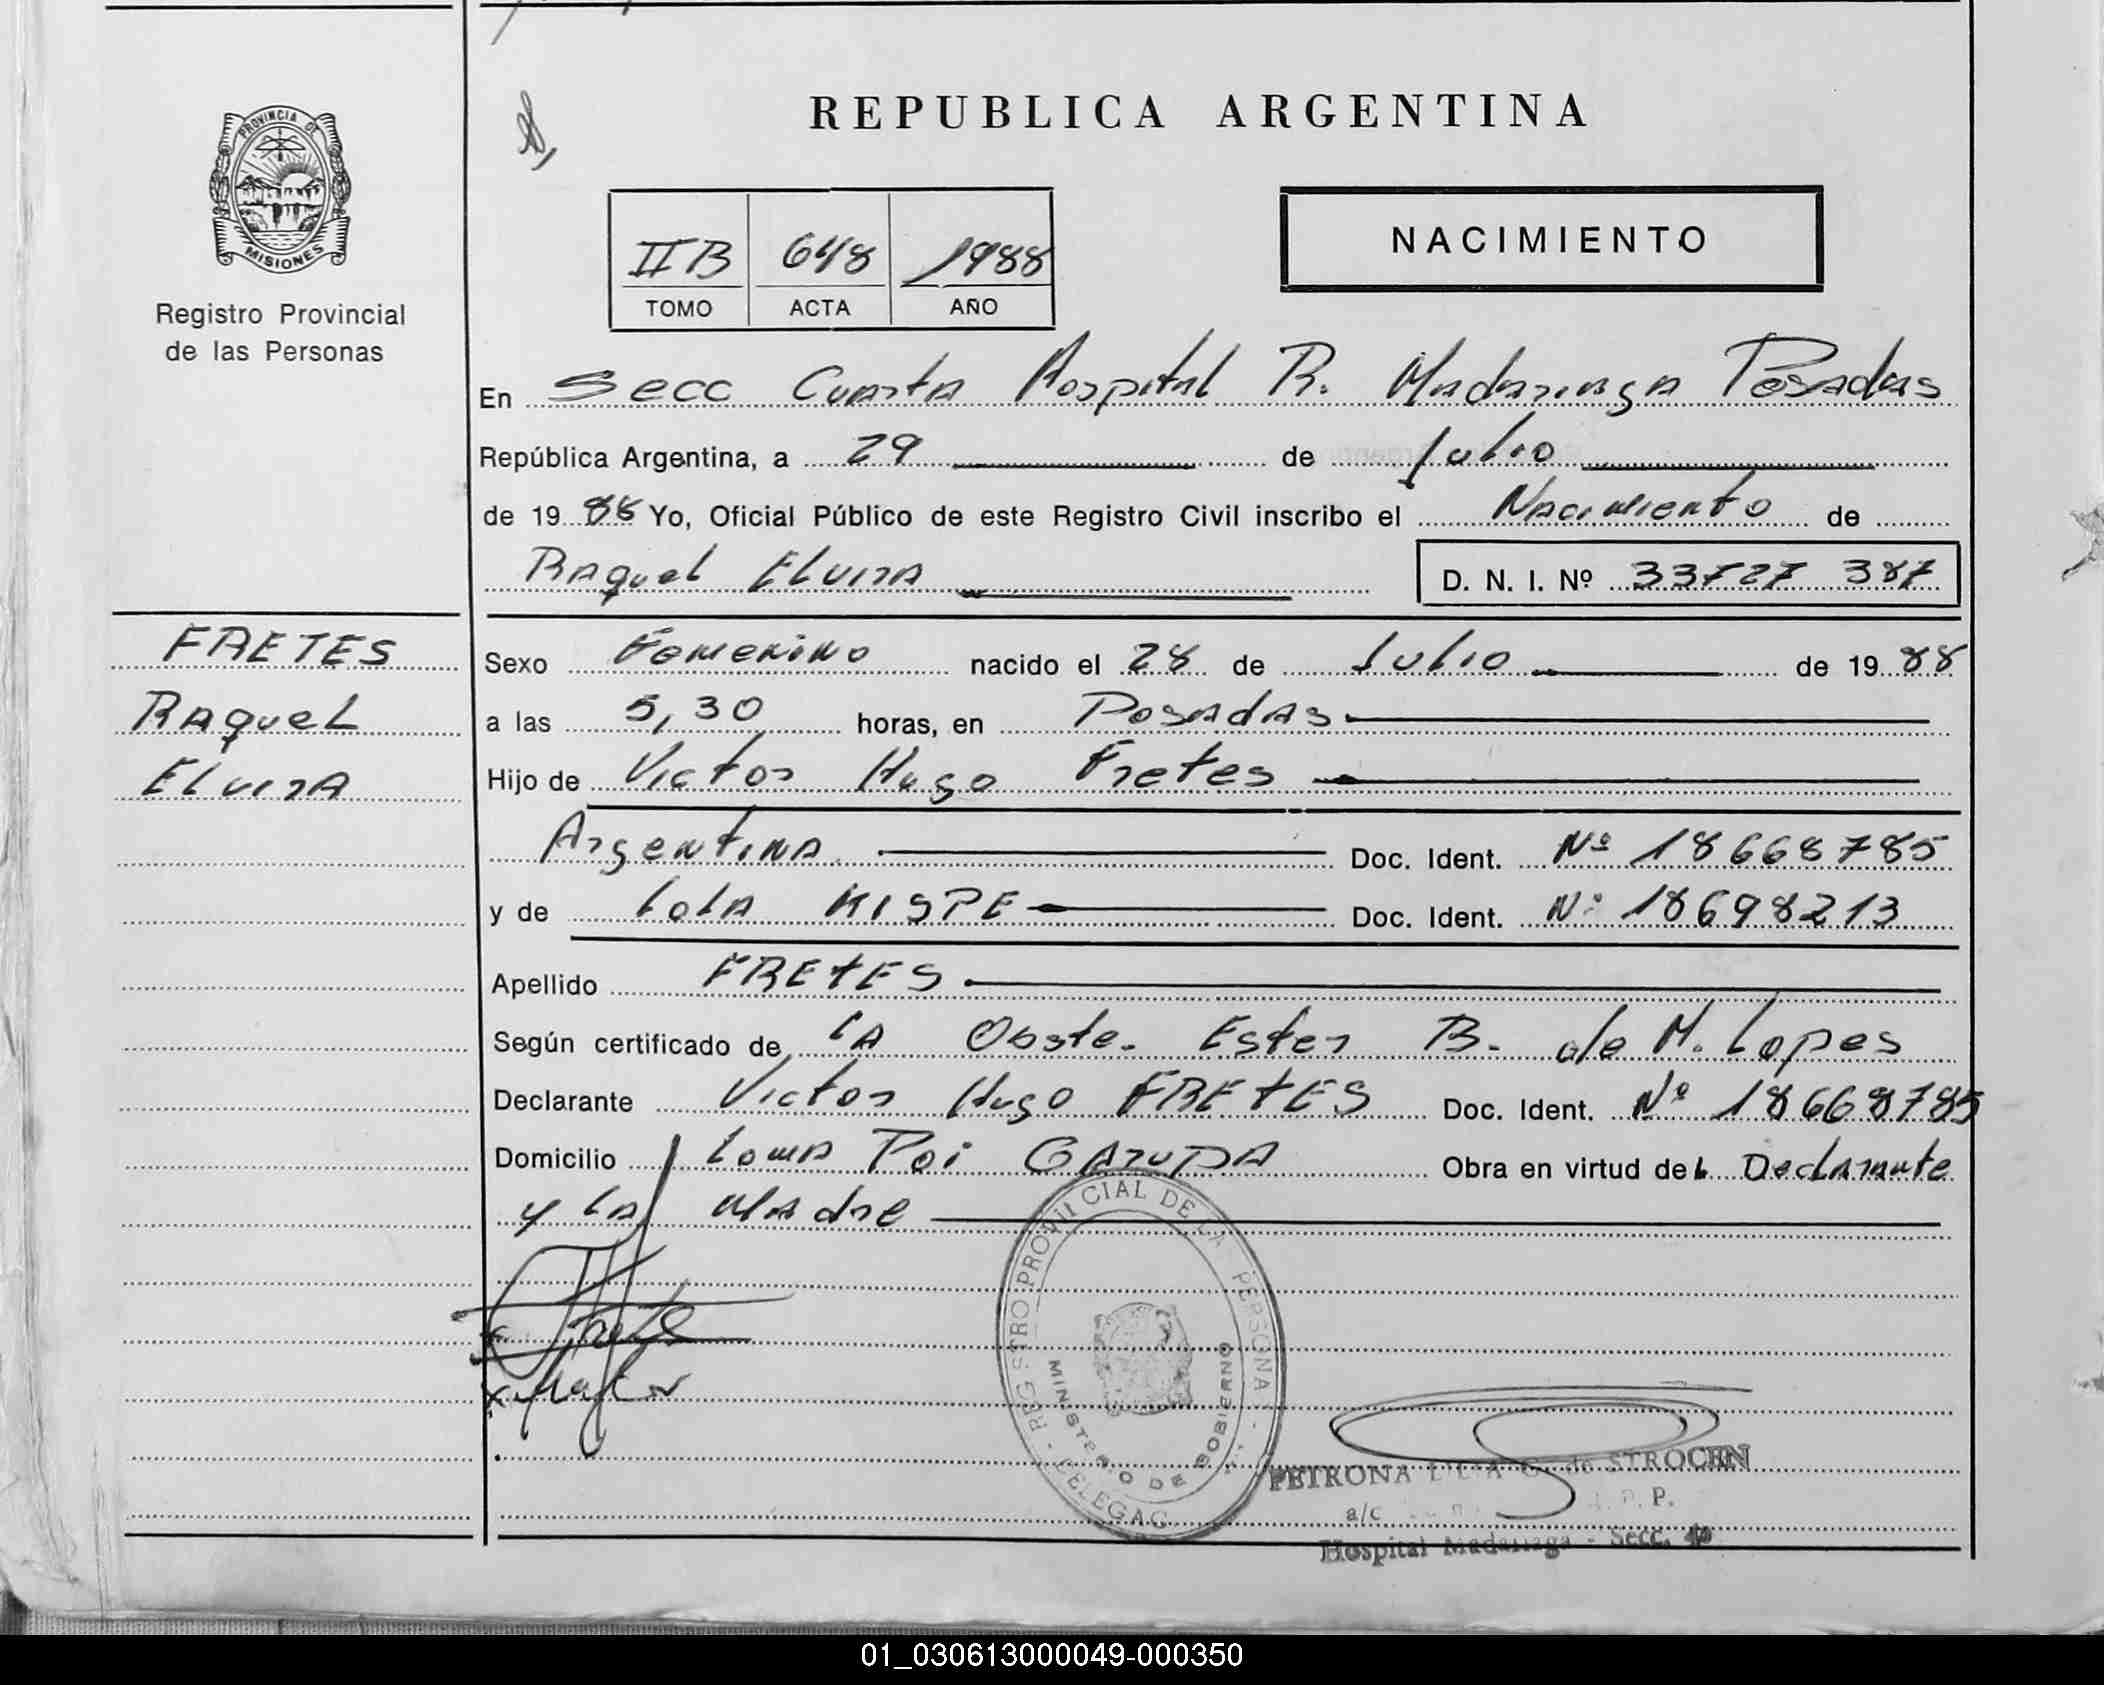 PROVINCIA DE
MISIONES
Registro Provincial
de las Personas
REPUBLICA ARGENTINA
NACIMIENTO
IIB 648 1988
TOMO ACTA AÑO
En Secc Cuarta Hospital R. Madariaga Posadas
República Argentina, a 29 de Julio
de 1988 Yo, Oficial Público de este Registro Civil inscribo el Nacimiento de
Raquel Elvira D. N. I. Nº 33727 387
FRETES
Raquel
Elvira
Sexo Femenino nacido el 28 de Julio de 1988
a las 5,30 horas, en Posadas
Hijo de Victor Hugo Fretes
Argentina Doc. Ident. Nº 18668785
y de Lola KISPE Doc. Ident. Nº 18698213
Apellido FRETES
Según certificado de la Obste. Ester B. de M. Lopes
Declarante Victor Hugo FRETES Doc. Ident. Nº 18668785
Domicilio Loma Poi GARUPA Obra en virtud del Declarante
y la Madre
REGISTRO PROVINCIAL DE LA PERSONA
MINISTERIO DE GOBIERNO
DELEGAC
PETRONA G. de STROCEN
a/c P.
Hospital Madariaga - Secc. 4a
01_030613000049-000350